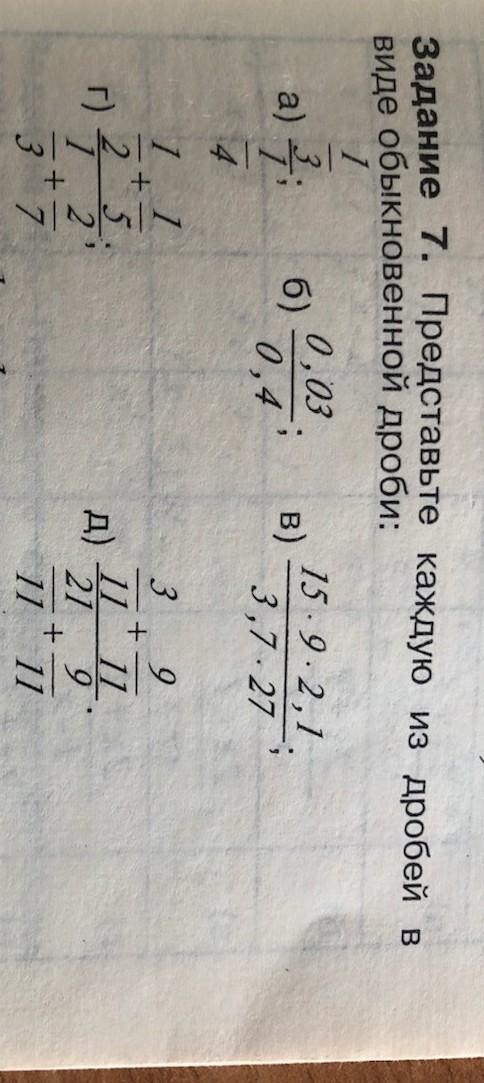 Задание 7. Представьте каждую из дробей в
виде обыкновенной дроби:
а) \frac{\frac{1}{3}}{\frac{1}{4}}; б) \frac{0,03}{0,4}; в) \frac{15 · 9 · 2,1}{3,7 · 27};
г) \frac{\frac{1}{2} + \frac{1}{5}}{\frac{1}{3} + \frac{2}{7}}; д) \frac{\frac{3}{11} + \frac{9}{11}}{\frac{21}{11} + \frac{9}{11}}.